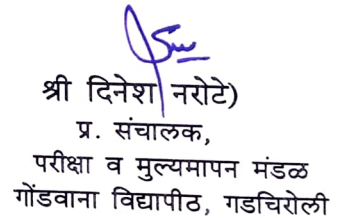 श्री दिनेश नरोटे)
प्र. संचालक,
परीक्षा व मुल्यमापन मंडळ
गोंडवाना विद्यापीठ, गडचिरोली